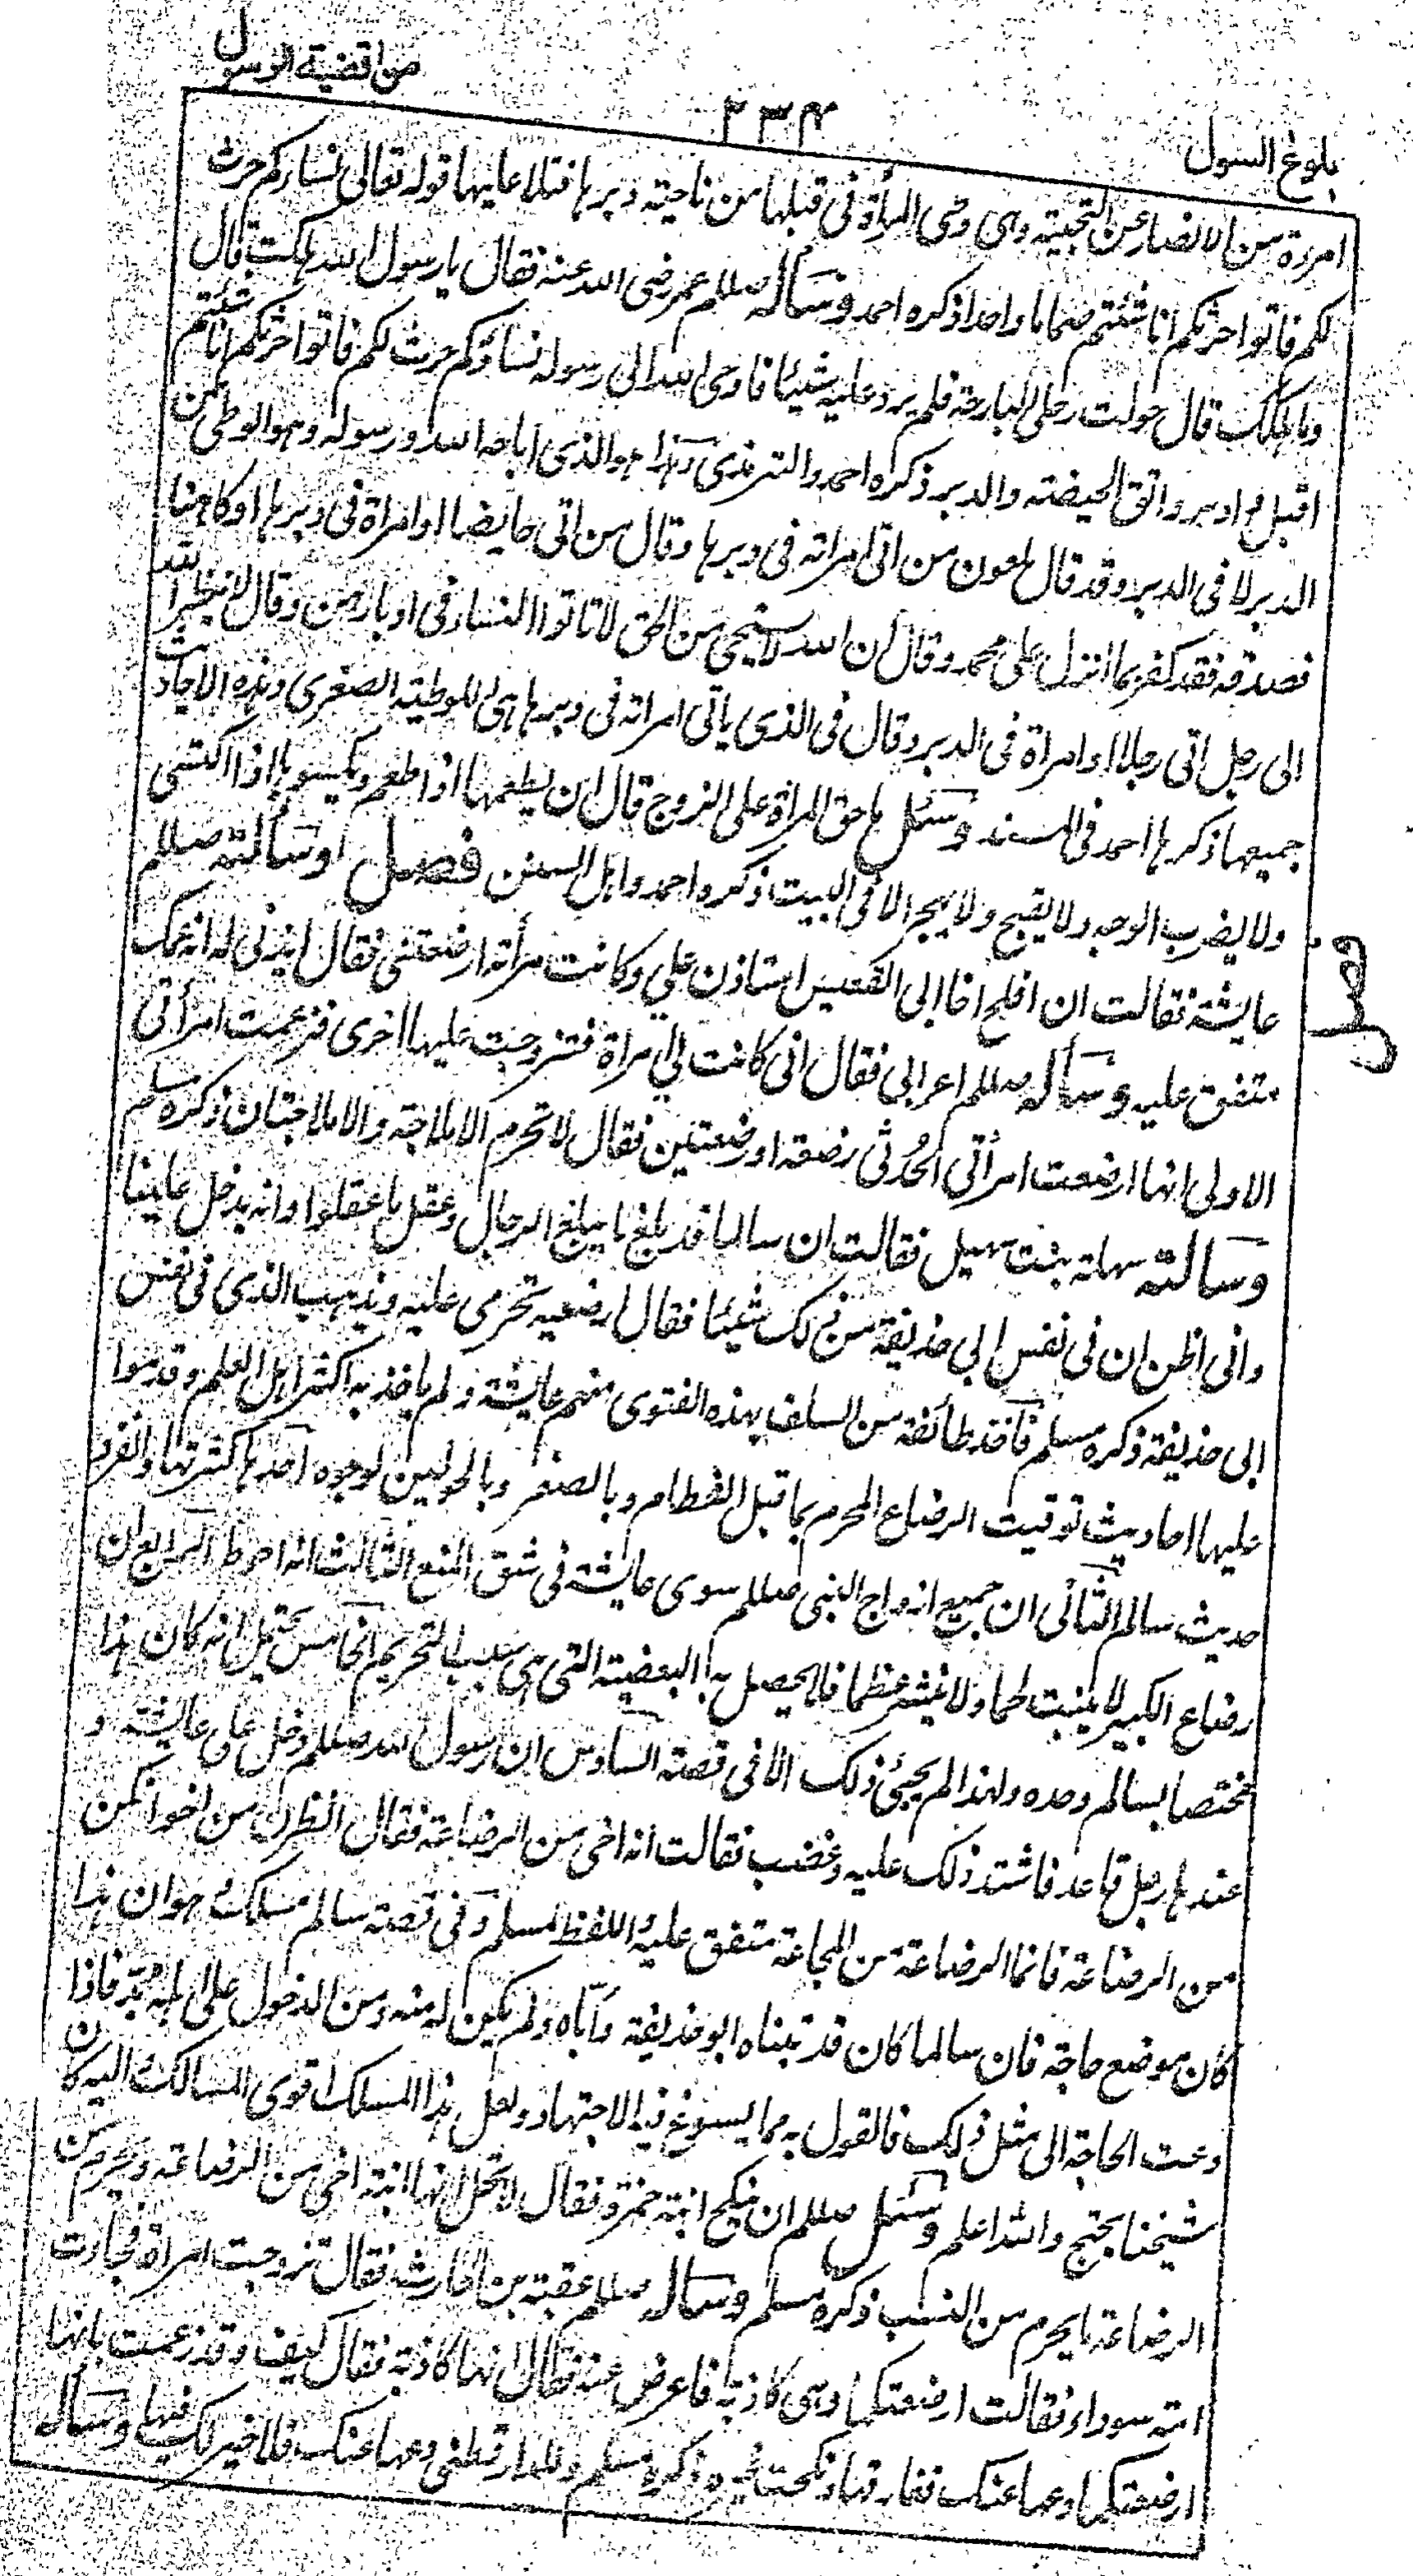 من اقضية الرسول
٢٣٤
بلوغ السول
امرءة من الانصار عن التجبية وهى وطى المرأة فى قبلها من ناحية دبرها فتلا عليها قوله تعالى نساركم حرث
لكم فاتوا حرثكم انا شئتم صماما واحدا ذكره احمد وسأله صللم عمر رضى الله عنه فقال يا رسول الله هلكت قال
وما اهلكك قال حولت رحلى البارحة فلم يرد عليه شيئا فاوحى الله الى رسوله نساؤكم حرث لكم فاتوا حرثكم انا شئتم
اقبل و ادبر واتق الحيضة والدبر ذكره احمد والترمذى وهذا هو الذى اباحه الله ورسوله وهو الوطى من
الدبر لا فى الدبر وقد قال ملعون من اتى امراته فى دبرها وقال من اتى حايضا او امراة فى دبرها او كاهنا
فصدقه فقد كفر بما انزل على محمد وقال ان الله لا يستحيى من الحق لا تاتوا النساء فى ادبارهن وقال لا ينظر الله
الى رجل اتى رجلا او امراة فى الدبر وقال فى الذى ياتى امراته فى دبرها هى اللوطية الصغرى وهذه الاحاديث
جميعها ذكرها احمد فى المسند وسئل ما حق المرأة على الزوج قال ان يطعمها اذا طعم ويكسوها اذا اكتسى
ولا يضرب الوجه ولا يقبح ولا يهجر الا فى البيت ذكره احمد واهل السنن فصل وسألته صللم
فصل
عايشة فقالت ان افلح اخا ابى القعيس استاذن علي وكانت امرأته ارضعتنى فقال ايذنى له انه عمك
متفق عليه وسأله صللم اعرابى فقال انى كانت لى امراة فتزوجت عليها اخرى فزعمت امرأتى
الاولى انها ارضعت امرأتى الحُدثى رضعة او رضعتين فقال لا تحرم الاملاجة والاملاجتان ذكره مسلم
وسألته سهلة بنت سهيل فقالت ان سالما قد بلغ ما يبلغ الرجال وعقل ما عقلوا وانه يدخل علينا
وانى اظن ان فى نفس ابى حذيفة من ذلك شيئا فقال ارضعيه تحرمى عليه ويذهب الذى فى نفس
ابى حذيفة ذكره مسلم فاخذ طائفة من السلف بهذه الفتوى منهم عايشة ولم ياخذ به اكثر اهل العلم وقدموا
عليها احاديث توقيت الرضاع المحرم بما قبل الفطام وبالصغر وبالحولين لوجوه احدها كثرتها وانفراد
حديث سالم الثانى ان جميع ازواج النبى صللم سوى عايشة فى شق المنع الثالث انه احوط الرابع ان
رضاع الكبير لا ينبت لحما ولا ينشر عظما فلا يحصل به البعضية التى هى سبب التحريم الخامس يحتمل انه كان هذا
مختصا بسالم وحده ولهذا لم يجئ ذلك الا فى قصته السادس ان رسول الله صللم دخل على عايشة و
عندها رجل قاعد فاشتد ذلك عليه وغضب فقالت انه اخى من الرضاعة فقال انظرن من اخوانكن
من الرضاعة فانما الرضاعة من المجاعة متفق عليه واللفظ لمسلم وفى قصة سالم مسلك وهو ان هذا
كان موضع حاجة فان سالما كان قد تبناه ابو حذيفة وربّاه ولم يكن له منه ومن الدخول على اهله بُدّ فاذا
دعت الحاجة الى مثل ذلك فالقول به مما يسوغ فيه الاجتهاد ولعل هذا المسلك اقوى المسالك واليه كان
شيخنا يجنح والله اعلم وسئل صللم ان ينكح ابنة حمزة فقال لا تحل انها ابنة اخى من الرضاعة ويحرم من
الرضاعة ما يحرم من النسب ذكره مسلم وسأله صللم عقبة بن الحارث فقال تزوجت امراة فجاءت
امة سوداء فقالت ارضعتكما وهى كاذبة فاعرض عنه فقال انها كاذبة فقال كيف وقد زعمت بانها
ارضعتكما دعها عنك ففارقها ونكحت غيره ذكره مسلم وللدارقطنى دعها عنك فلا خير لك فيها وسأله